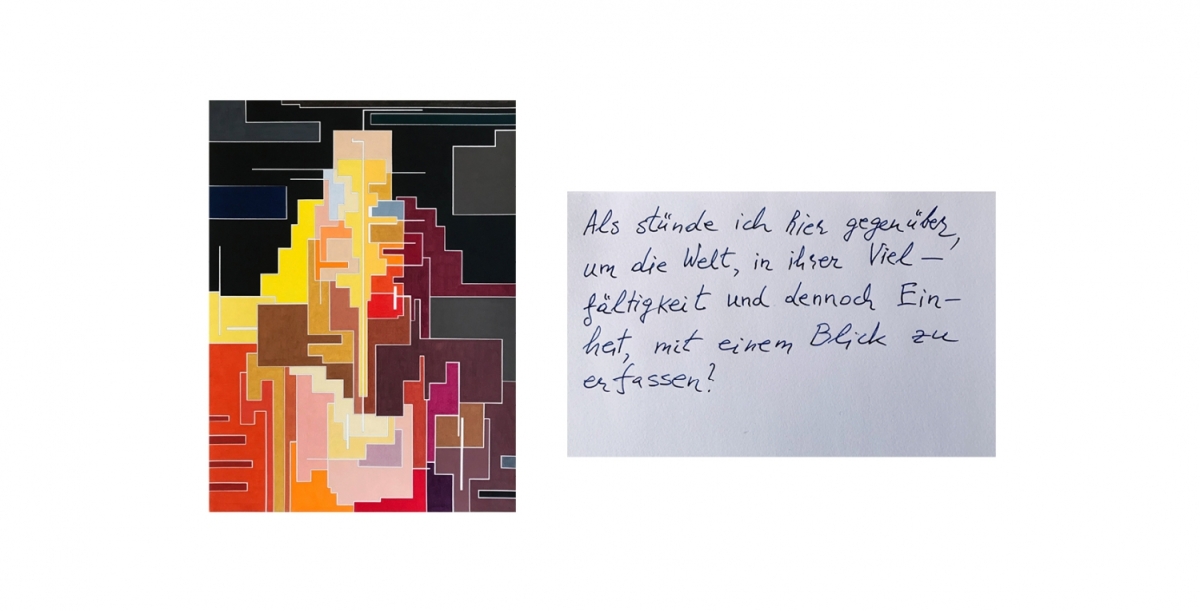 Als stünde ich hier gegenüber,
um die Welt, in ihrer Viel-
fältigkeit und dennoch Ein-
heit, mit einem Blick zu
erfassen?